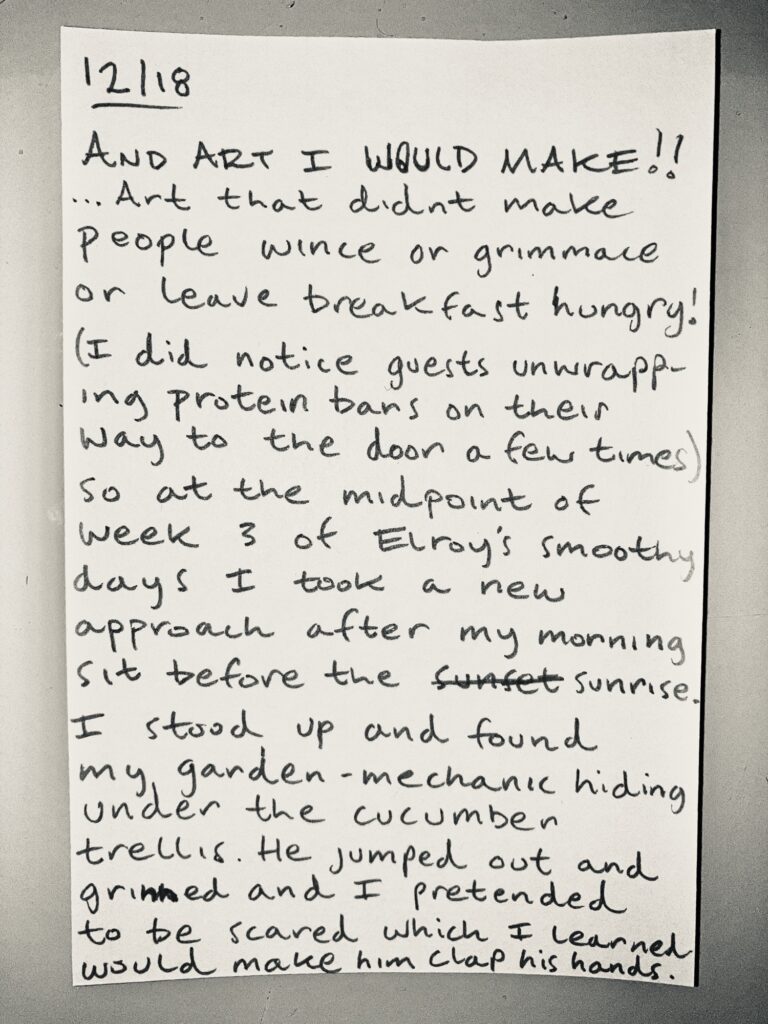 12/18
AND ART I WOULD MAKE!!
...Art that didnt make
people wince or grimmace
or leave breakfast hungry!
(I did notice guests unwrapp-
ing protein bars on their
way to the door a few times)
so at the midpoint of
week 3 of Elroy's smoothy
days I took a new
approach after my morning
sit before the sunset sunrise.
I stood up and found
my garden-mechanic hiding
under the cucumber
trellis. He jumped out and
grinned and I pretended
to be scared which I learned
would make him clap his hands.